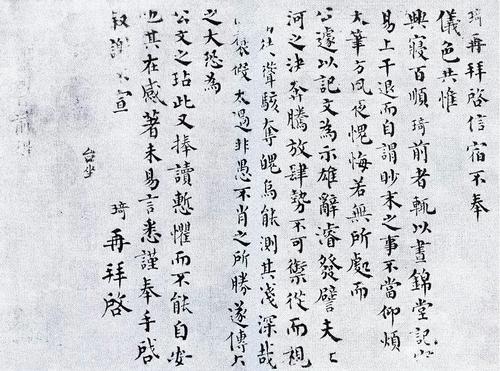 琦再拜啓信宿不奉
儀色共惟
興寢百順琦前者輒以晝錦堂記
易上干退而自謂眇末之事不當仰煩
大筆方夙夜愧悔若無所處而
公遽以記文為示雄辭濬發譬夫
河之決奔騰放肆勢不可禦從而視
聳駭奪魄烏能測其淺深哉
褒假太過非愚不肖之所勝遂傳
之大恐為
公文之玷此又捧讀慙懼而不能自安
也其在感著未易言悉謹奉手啓
叙謝不宣
琦再拜啓
台坐